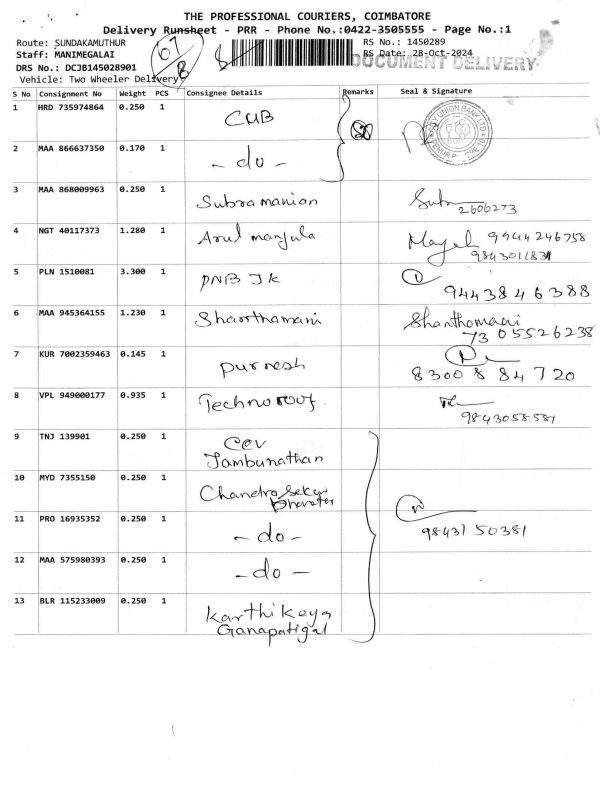 THE PROFESSIONAL COURIERS, COIMBATORE
Delivery Runsheet - PRR - Phone No.:0422-3505555 - Page No.:1
Route: SUNDAKAMUTHUR
Staff: MANIMEGALAI
DRS No.: DCJB145028901
Vehicle: Two Wheeler Delivery
67
RS No.: 1450289
RS Date: 28-Oct-2024
DOCUMENT DELIVERY
S No Consignment No Weight PCS Consignee Details Remarks Seal & Signature
1 HRD 735974864 0.250 1 CUB
UNION BANK LTD
2 MAA 866637350 0.170 1 - do -
3 MAA 868009963 0.250 1 Subramanian
2606273
4 NGT 40117373 1.280 1 Arul manjula 9944246758
5 PLN 1510081 3.300 1 PNB JK
9443846388
6 MAA 945364155 1.230 1 Shanthamani Shanthamani
7305526238
7 KUR 7002359463 0.145 1 purnesh
8300884720
8 VPL 949000177 0.935 1 Technoroof
9843058581
9 TNJ 139901 0.250 1
Jambunathan
10 MYD 7355150 0.250 1 Chandra Sekar
11 PRO 16935352 0.250 1 - do -
9843150381
12 MAA 575980393 0.250 1 - do -
13 BLR 115233009 0.250 1 Karthikeya
Ganapatigal